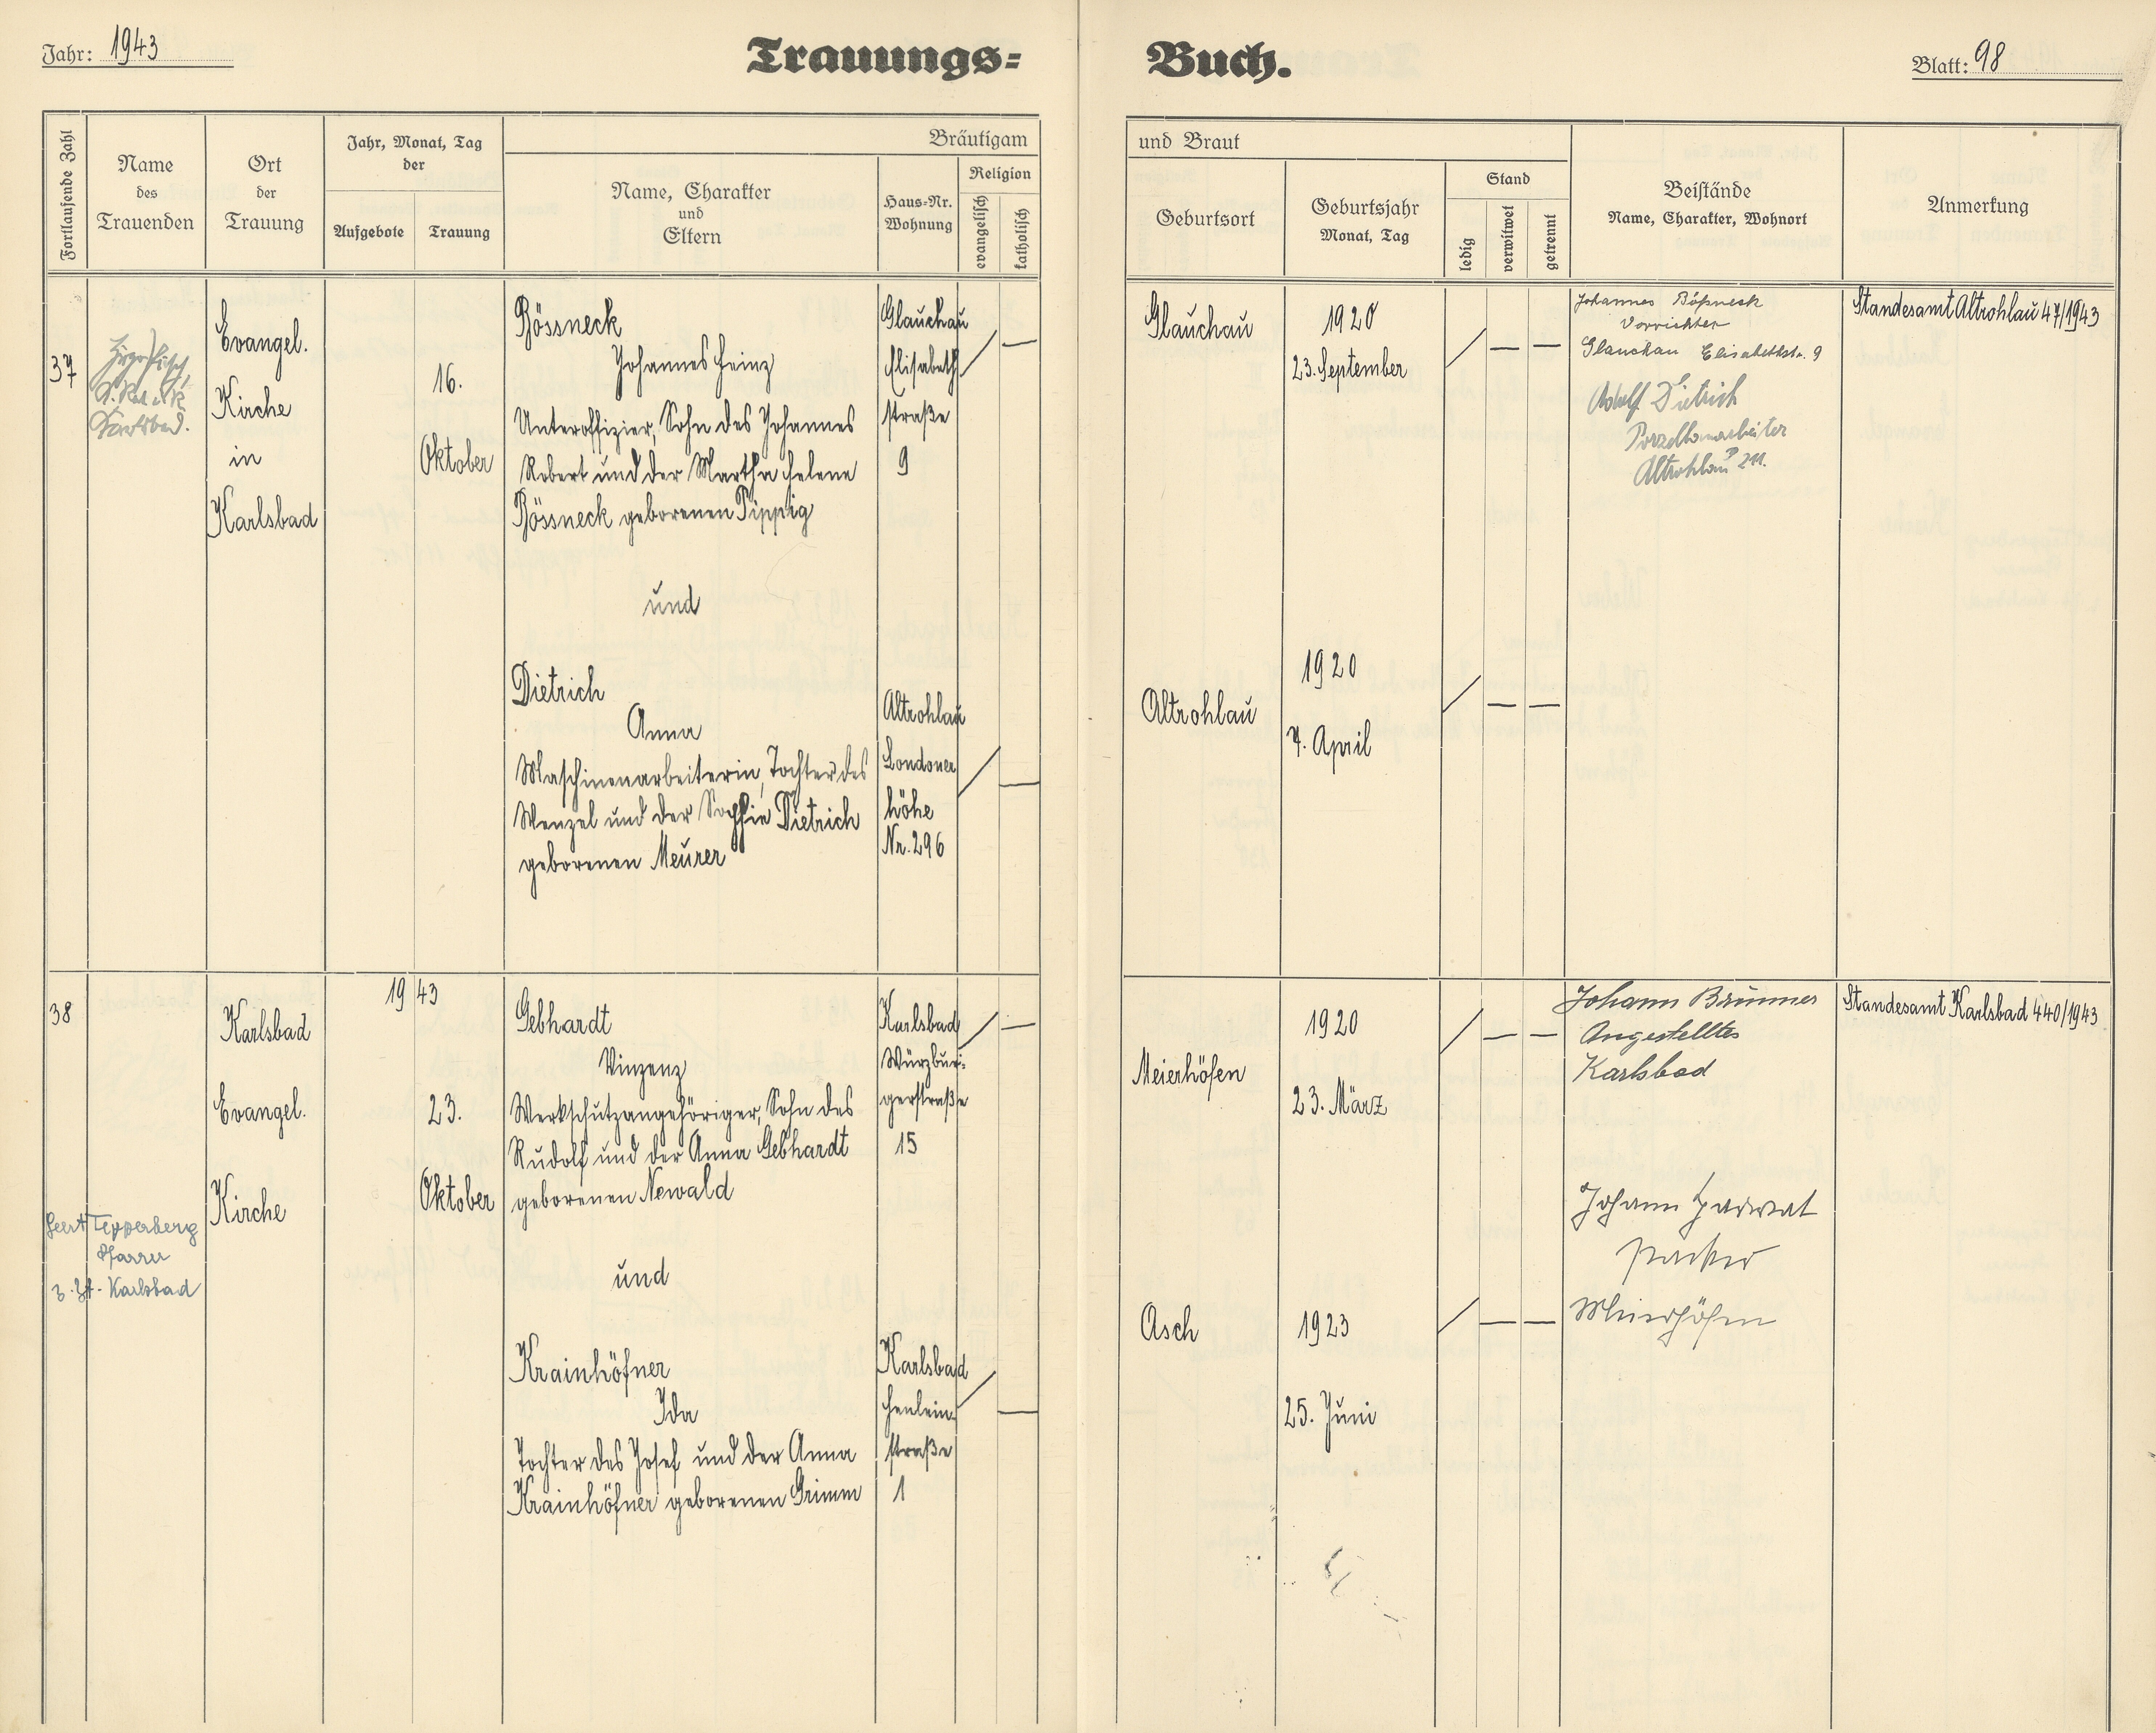 Jahr: 1943
Trauungs=
Buch.
Blatt: 98
Fortlaufende Zahl
Name
des
Trauenden
Ort
der
Trauung
Jahr, Monat, Tag
der
Aufgebote
Trauung
Bräutigam
Name, Charakter
und
Eltern
Haus=Nr.
Wohnung
Religion
evangelisch
katholisch
und Braut
Geburtsort
Geburtsjahr
Monat, Tag
Stand
ledig
verwitwet
getrennt
Beistände
Name, Charakter, Wohnort
Anmerkung
37
Karlsbad.
Evangel.
Kirche
in
Karlsbad
16.
Oktober
Rössneck
Johannes Heinz
Unteroffizier, Sohn des Johannes
Robert und der Martha Helene
Rössneck geborenen Pippig
Glauchau
Elisabeth
straße
9
Glauchau
1920
23. September
Johannes Rößneck
Vorrichter
Glauchau Elisabethstr. 9
Adolf Dietrich
Porzellanarbeiter
Altrohlau 211.
Standesamt Altrohlau 47/1943
und
Dietrich
Anna
Maschinenarbeiterin, Tochter des
Wenzel und der Sophie Dietrich
geborenen Meurer
Altrohlau
Londoner
höhe
Nr. 296
Altrohlau
1920
7. April
38
Geert Tepperberg
Pfarrer
z. Zt. Karlsbad
Karlsbad
Evangel.
Kirche
1943
23.
Oktober
Gebhardt
Vinzenz
Werkschutzangehöriger, Sohn des
Rudolf und der Anna Gebhardt
geborenen Newald
Karlsbad
Würzbur-
gerstraße
15
Meierhöfen
1920
23. März
Johann Brünner
Angestellter
Karlsbad
Standesamt Karlsbad 440/1943
Johann
Meierhöfen
und
Krainhöfner
Ida
Tochter des Josef und der Anna
Krainhöfner geborenen Grimm
Karlsbad
Henlein-
straße
1
Asch
1923
25. Juni